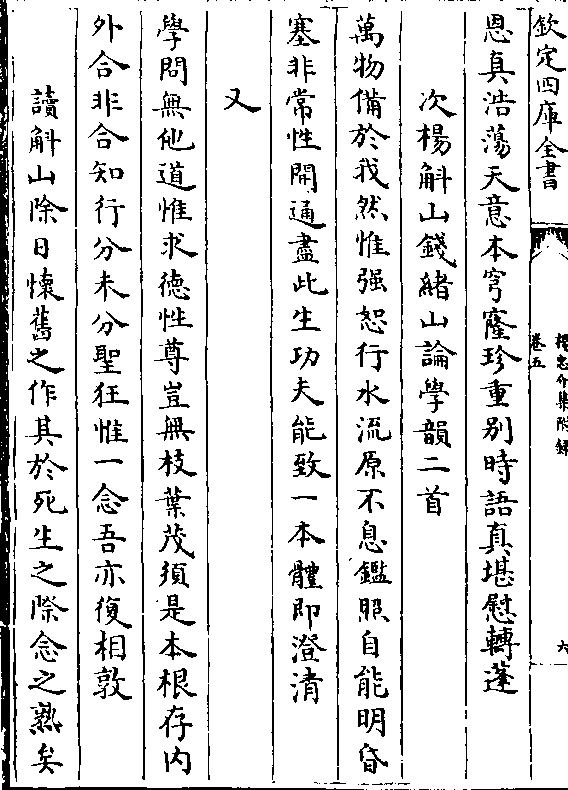 欽定四庫全書
卷五
六
恩真浩蕩天意本穹窿珍重别時語真堪慰轉蓬
次楊斛山錢緒山論學韻二首
萬物備於我然惟强恕行水流原不息鑑照自能明昏
塞非常性開通盡此生功夫能致一本體即澄清
又
學問無他道惟求德性尊豈無枝葉茂須是本根存内
外合非合知行分未分聖狂惟一念吾亦復相敦
讀斛山除日懷舊之作其於死生之際念之熟矣